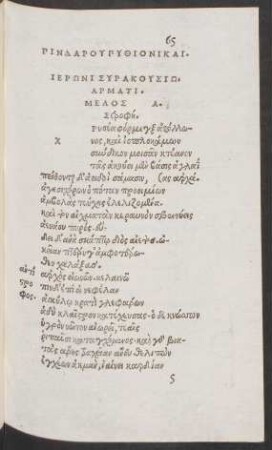 65
ΠΙΝΔΑΡΟΥ ΠΥΘΙΟΝΙΚΑΙ.
ΙΕΡΩΝΙ ΣΥΡΑΚΟΥΣΙΩ.
ΑΡΜΑΤΙ.
ΜΕΛΟΣ Α.
Στροφή.
Χ
ρυσέα φόρμιγξ ἀπόλλω-
νος, καὶ ἰοπλοκάμων
σύνδικον μοισᾶν κτέανον
τᾶς ἀκούει μὲν βάσις ἀγλαΐας
πείθονται δ' ἀοιδοὶ σάμασιν,
ἁγησιχόρων ὁπόταν προοιμίων
ἀμβολὰς τεύχῃς ἐλελιζομένα.
καὶ τὸν αἰχματὰν κεραυνὸν σβεννύεις
ἀενάου πυρός. εὕ-
δει δ' ἀνὰ σκάπτῳ διὸς αἰετὸς ὠ-
κεῖαν πτέρυγ' ἀμφοτέρω-
θεν χαλάξας.
ἀντι
στρο
φος.
ἀρχὸς οἰωνῶν κελαινῶ
πιν δ' ἐπὶ οἱ νεφέλαν
ἀγκύλῳ κρατὶ γλεφάρων
ἁδὺ κλαΐστρον κατέχευας. ὁ δὲ κνώσσων
ὑγρὸν νῶτον αἰωρεῖ, τεαῖς
ῥιπαῖσι κατασχόμενος. καὶ γὰρ βια-
τὰς ἄρης τραχεῖαν ἄνευθε λιπὼν
ἐγχέων ἀκμὰν, ἰαίνει καρδίαν
5